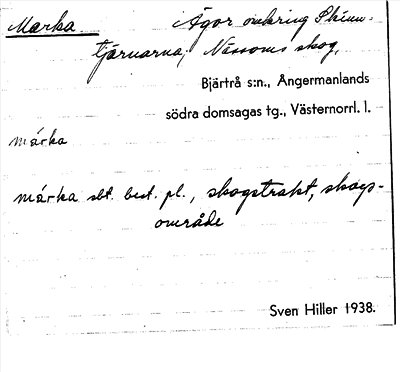 Marka Ägor omkring Skinn-
tjärnarna; Nässoms skog,
Bjärtrå s:n., Ångermanlands
södra domsagas tg., Västernorrl. l.
márka
márka sbt. best. pl., skogstrakt, skogs-
område
Sven Hiller 1938.